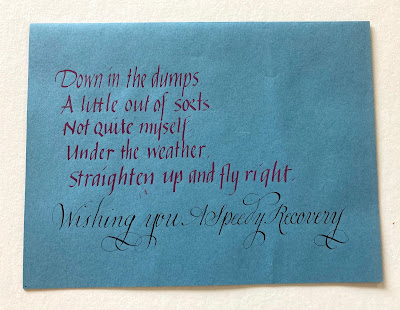 Down in the dumps
A little out of sorts.
Not quite myself
Under the weather.
Straighten up and fly right.
Wishing you A Speedy Recovery